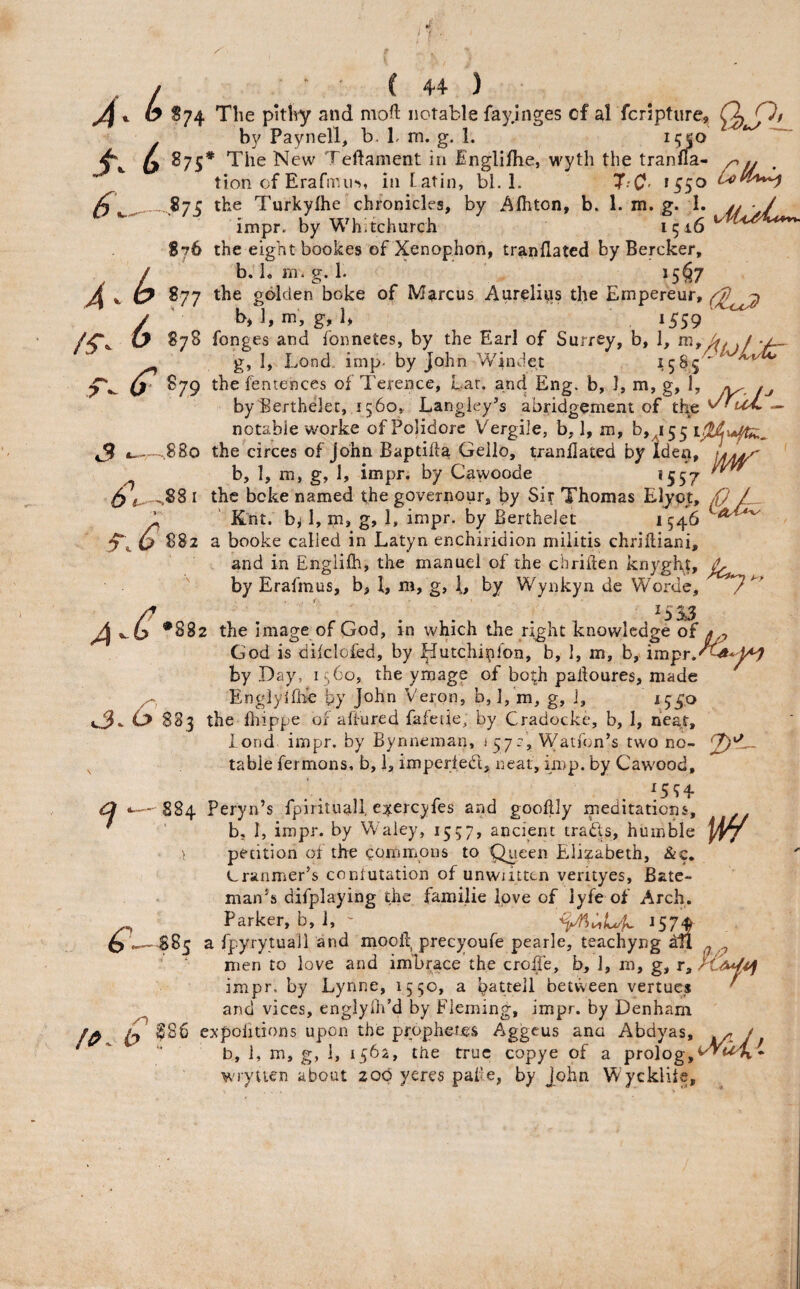 ( 44 )
4. 6 874 The pithy and moſt notable ſayinges of al ſcripture,
by Paynell, b. l. m. g. l. 1550
5. 6 875* The New Teſtament in Engliſhe, wyth the tranſla-
tion of Eraſmus, in Latin, bl. l. T. C. 1550
6. 875 the Turkyſhe chronicles, by Aſhton, b. l. m. g. l.
impr. by Whitchurch 1546
876 the eight bookes of Xenophon, tranſlated by Bercker,
b. l. m. g. l. 1567
4. 6 877 the golden boke of Marcus Aurelius the Empereur,
b, l, m, g, l, 1559
15. 6 878 ſonges and ſonnetes, by the Earl of Surrey, b, l, m,
g, l, Lond. imp. by John Windet 1585
5. 6 879 the ſentences of Terence, Lat. and Eng. b, l, m, g, l,
by Berthelet, 1560, Langley's abridgement of the
notable worke of Polidore Vergile, b, l, m, b, 1551
3 880 the circes of John Baptiſta Gello, tranſlated by Iden,
b, l, m, g, l, impr. by Cawoode 1557
6 881 the boke named the governour, by Sir Thomas Elyot,
Knt. b, l, m, g, l, impr. by Berthelet 1546
5. 6 882 a booke called in Latyn enchiridion militis chriſtiani,
and in Engliſh, the manuel of the chriſten knyght,
by Eraſmus, b, l, m, g, l, by Wynkyn de Worde,
1533
4. 6 *882 the image of God, in which the right knowledge of
God is diſcloſed, by Hutchinſon, b, l, m, b, impr.
by Day, 1560, the ymage of both paſtoures, made
Englyiſhe by John Veron, b, l, m, g, l, 1550
3. 6 883 the ſhippe of aſſured ſafetie, by Cradocke, b, l, neat,
Lond. impr. by Bynneman, 1572, Watſon's two no-
table ſermons, b, l, imperfect, neat, imp. by Cawood,
1554
9 884 Peryn's ſpirituall exercyſes and gooſtly meditations,
b, l, impr. by Waley, 1557, ancient tracts, humble
petition of the commons to Queen Elizabeth, &c.
Cranmer's confutation of unwritten verityes, Bate-
man's diſplaying the familie love of lyfe of Arch.
Parker, b, l, 1574
6 885 a ſpyrytuall and mooſt precyouſe pearle, teachyng all
men to love and imbrace the croſſe, b, l, m, g, r,
impr. by Lynne, 1550, a battell between vertues
and vices, englyſh'd by Fleming, impr. by Denham
10. 6 886 expoſitions upon the prophetes Aggeus and Abdyas,
b, l, m, g, l, 1562, the true copye of a prolog,
wrytten about 200 yeres paſte, by John Wyckliſe,